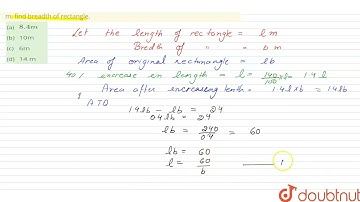 m. find breadth of rectangle.
(a) 8.4m
(b) 10m
(c) 6m
(d) 14m
Let the length of rectangle = l m
Bredth of " = b m
Area of original rectnangle = lb
40% increase in length = l = 140/100 × l = 1.4 l
Area after increasing lenth = 1.4l×b = 1.4lb
ATQ
1.4lb - lb = 24
0.4lb = 24
lb = 240/04 = 60
lb = 60
l = 60/b
doubtnut